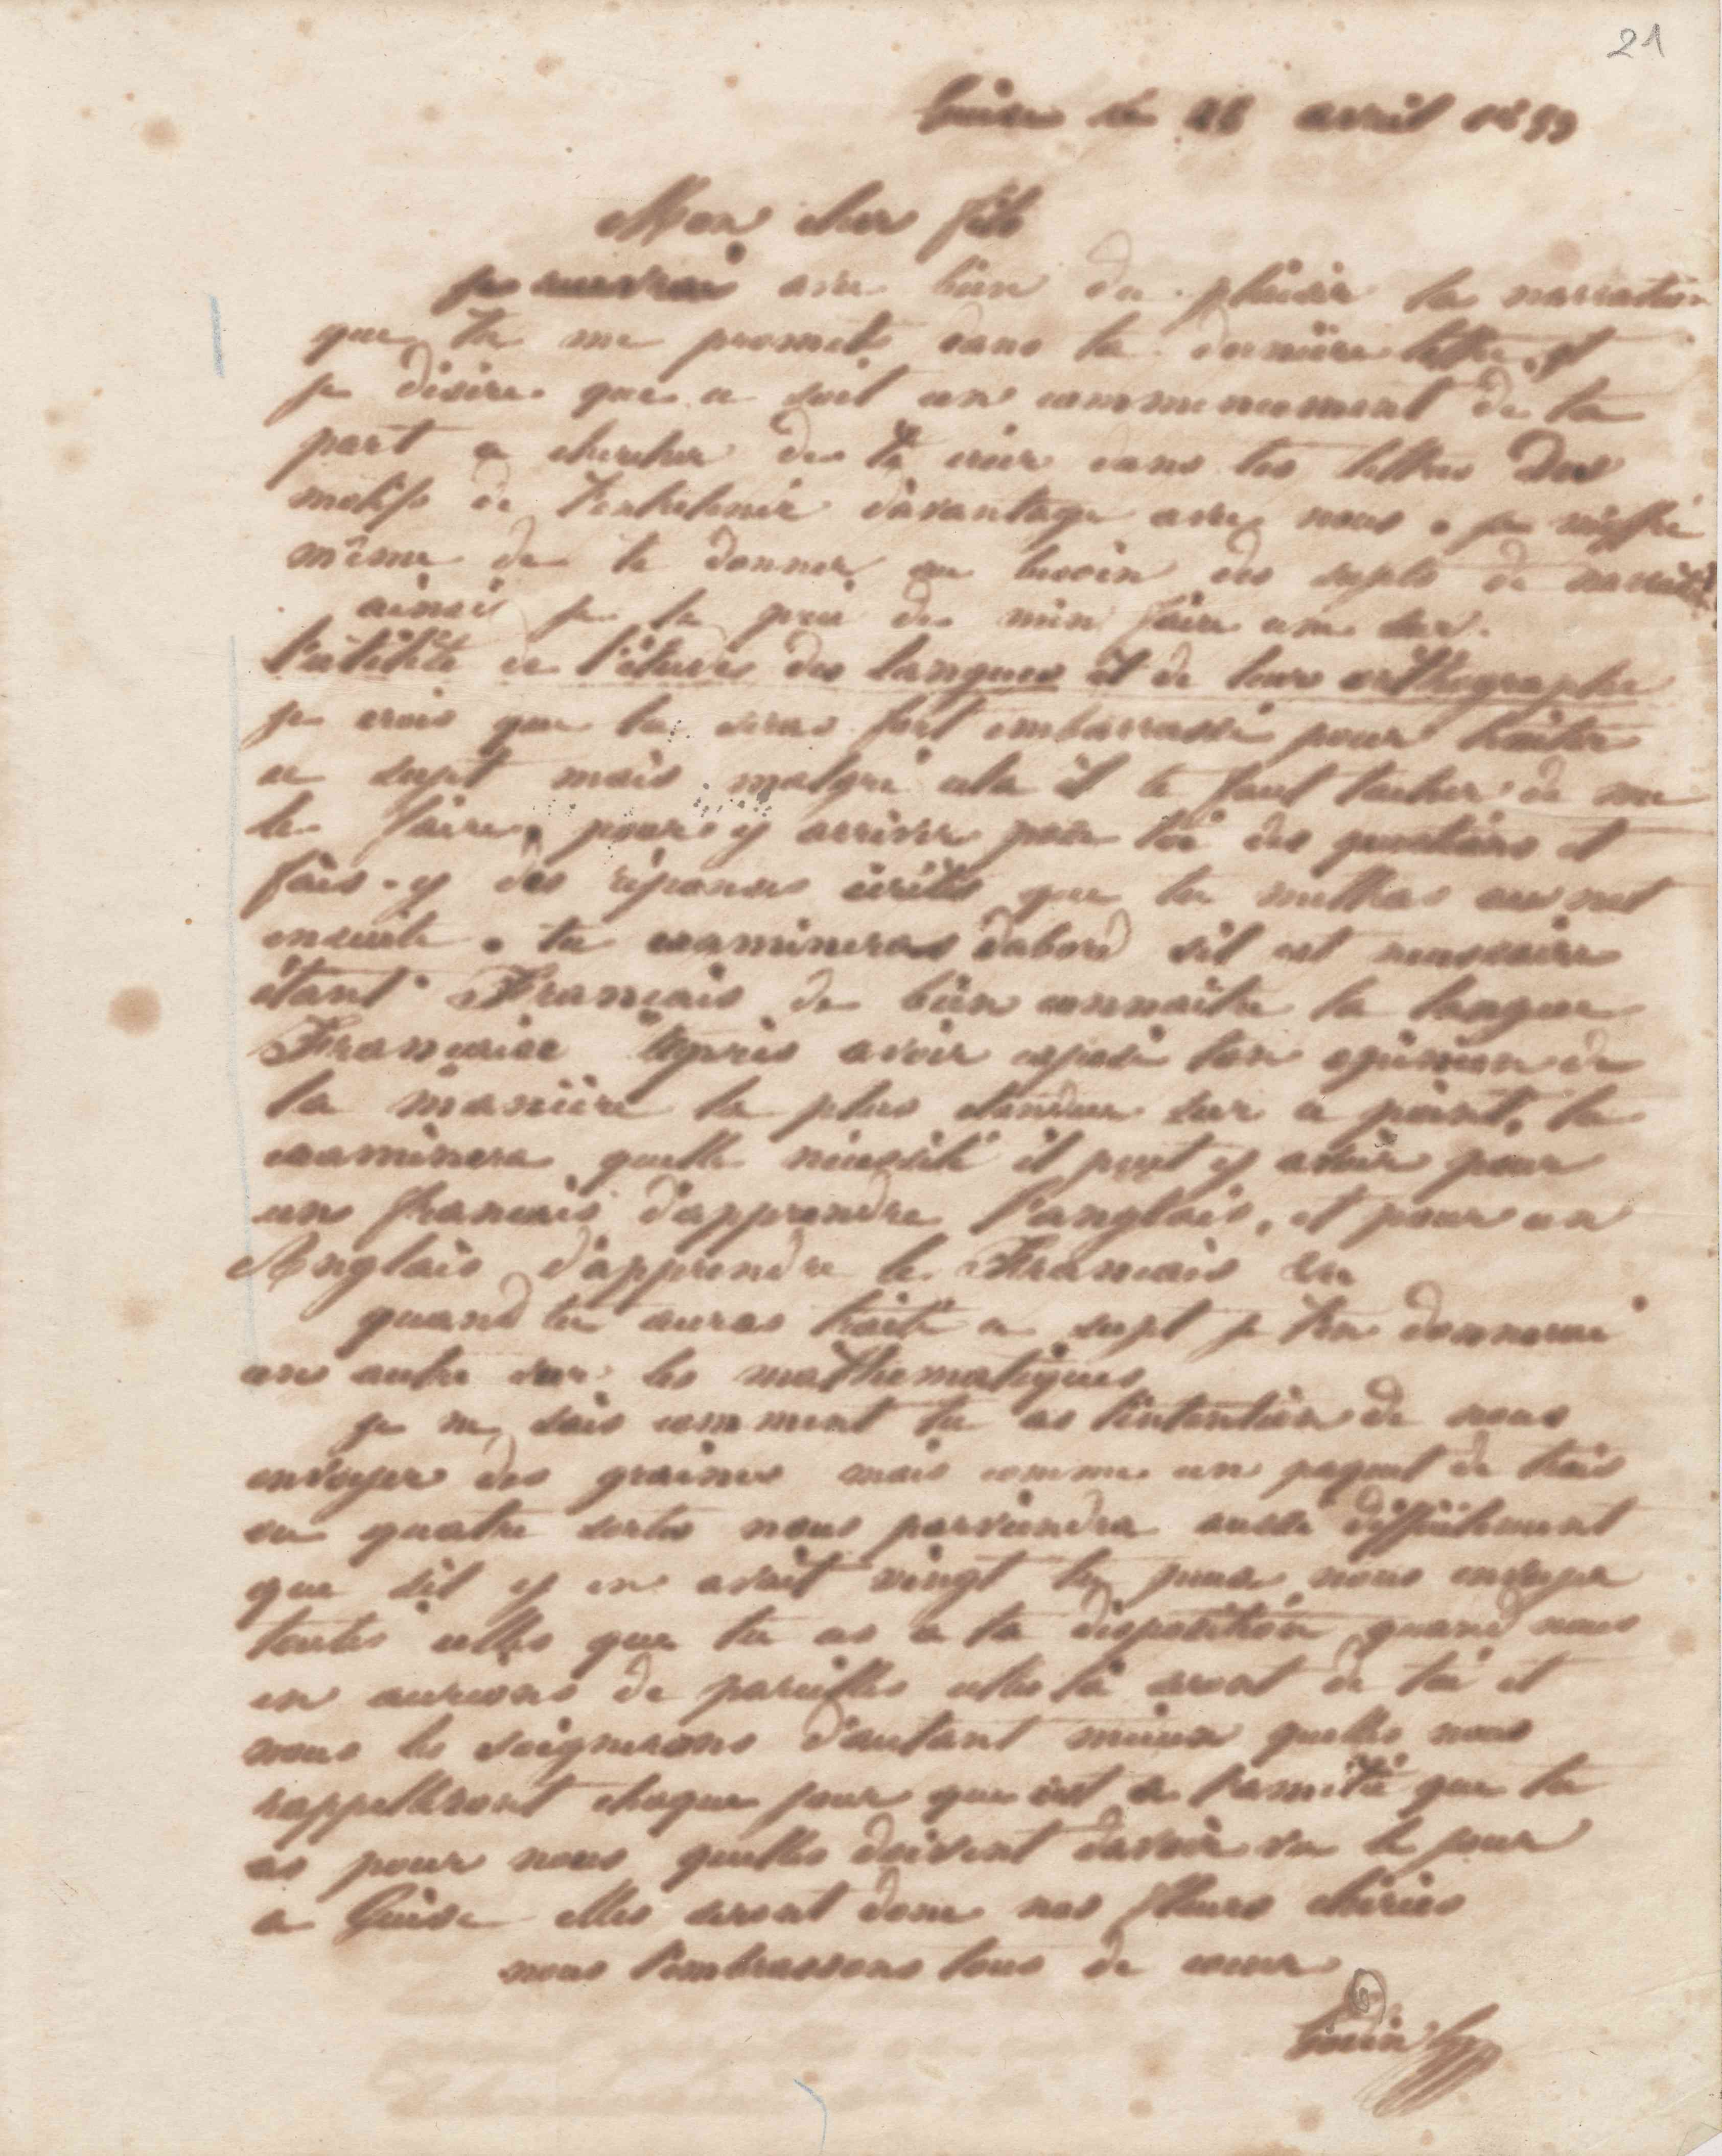 21
Guise le 26 avril 1855
Mon cher fils
je recevrai avec bien du plaisir la narration
que tu me promets dans ta dernière lettre, et
je désire que ce soit un commencement de ta
part a chercher de te créer dans tes lettres des
motifs de t'entretenir davantage avec nous. je m'offre
même de te donner au besoin des sujets de
ainsi je te prie de m'en faire une sur.
l'utilité de l'étude des langues et de leur orthographe
je crois que tu seras fort embarrassé pour traiter
ce sujet mais malgré cela il te faut tacher de me
le faire, pour y arriver pose toi des questions et
fais-y des réponses écrites que tu mettras au net
ensuite. tu examineras dabord sil est necessaire
étant Français de bien connaître la langue
Francaise Après avoir exposé ton opinion de
la manière la plus étendue sur ce point, tu
examinera quelle nécessité il peut y avoir pour
un francais d'apprendre l'anglais, et pour un
Anglais d'apprendre le Francais
quand tu auras traité ce sujet je t'en donnerai
un autre sur les mathematiques
je ne sais comment tu as l'intention de nous
envoyer des graines mais comme un paquet de trois
ou quatre sortes nous parviendra aussi difficilement
que sil y en avait vingt tu peux nous envoyer
toutes celles que tu as a ta disposition quand nous
en aurions de pareilles celles la seront de toi et
nous les soignerons d'autant mieux quelles nous
rappelleront chaque jour que cest a l'amitié que tu
as pour nous quelles doivent davoir vu le jour
a Guise elles seront donc nos fleurs chéries
nous t'embrassons tous de coeur
Godin